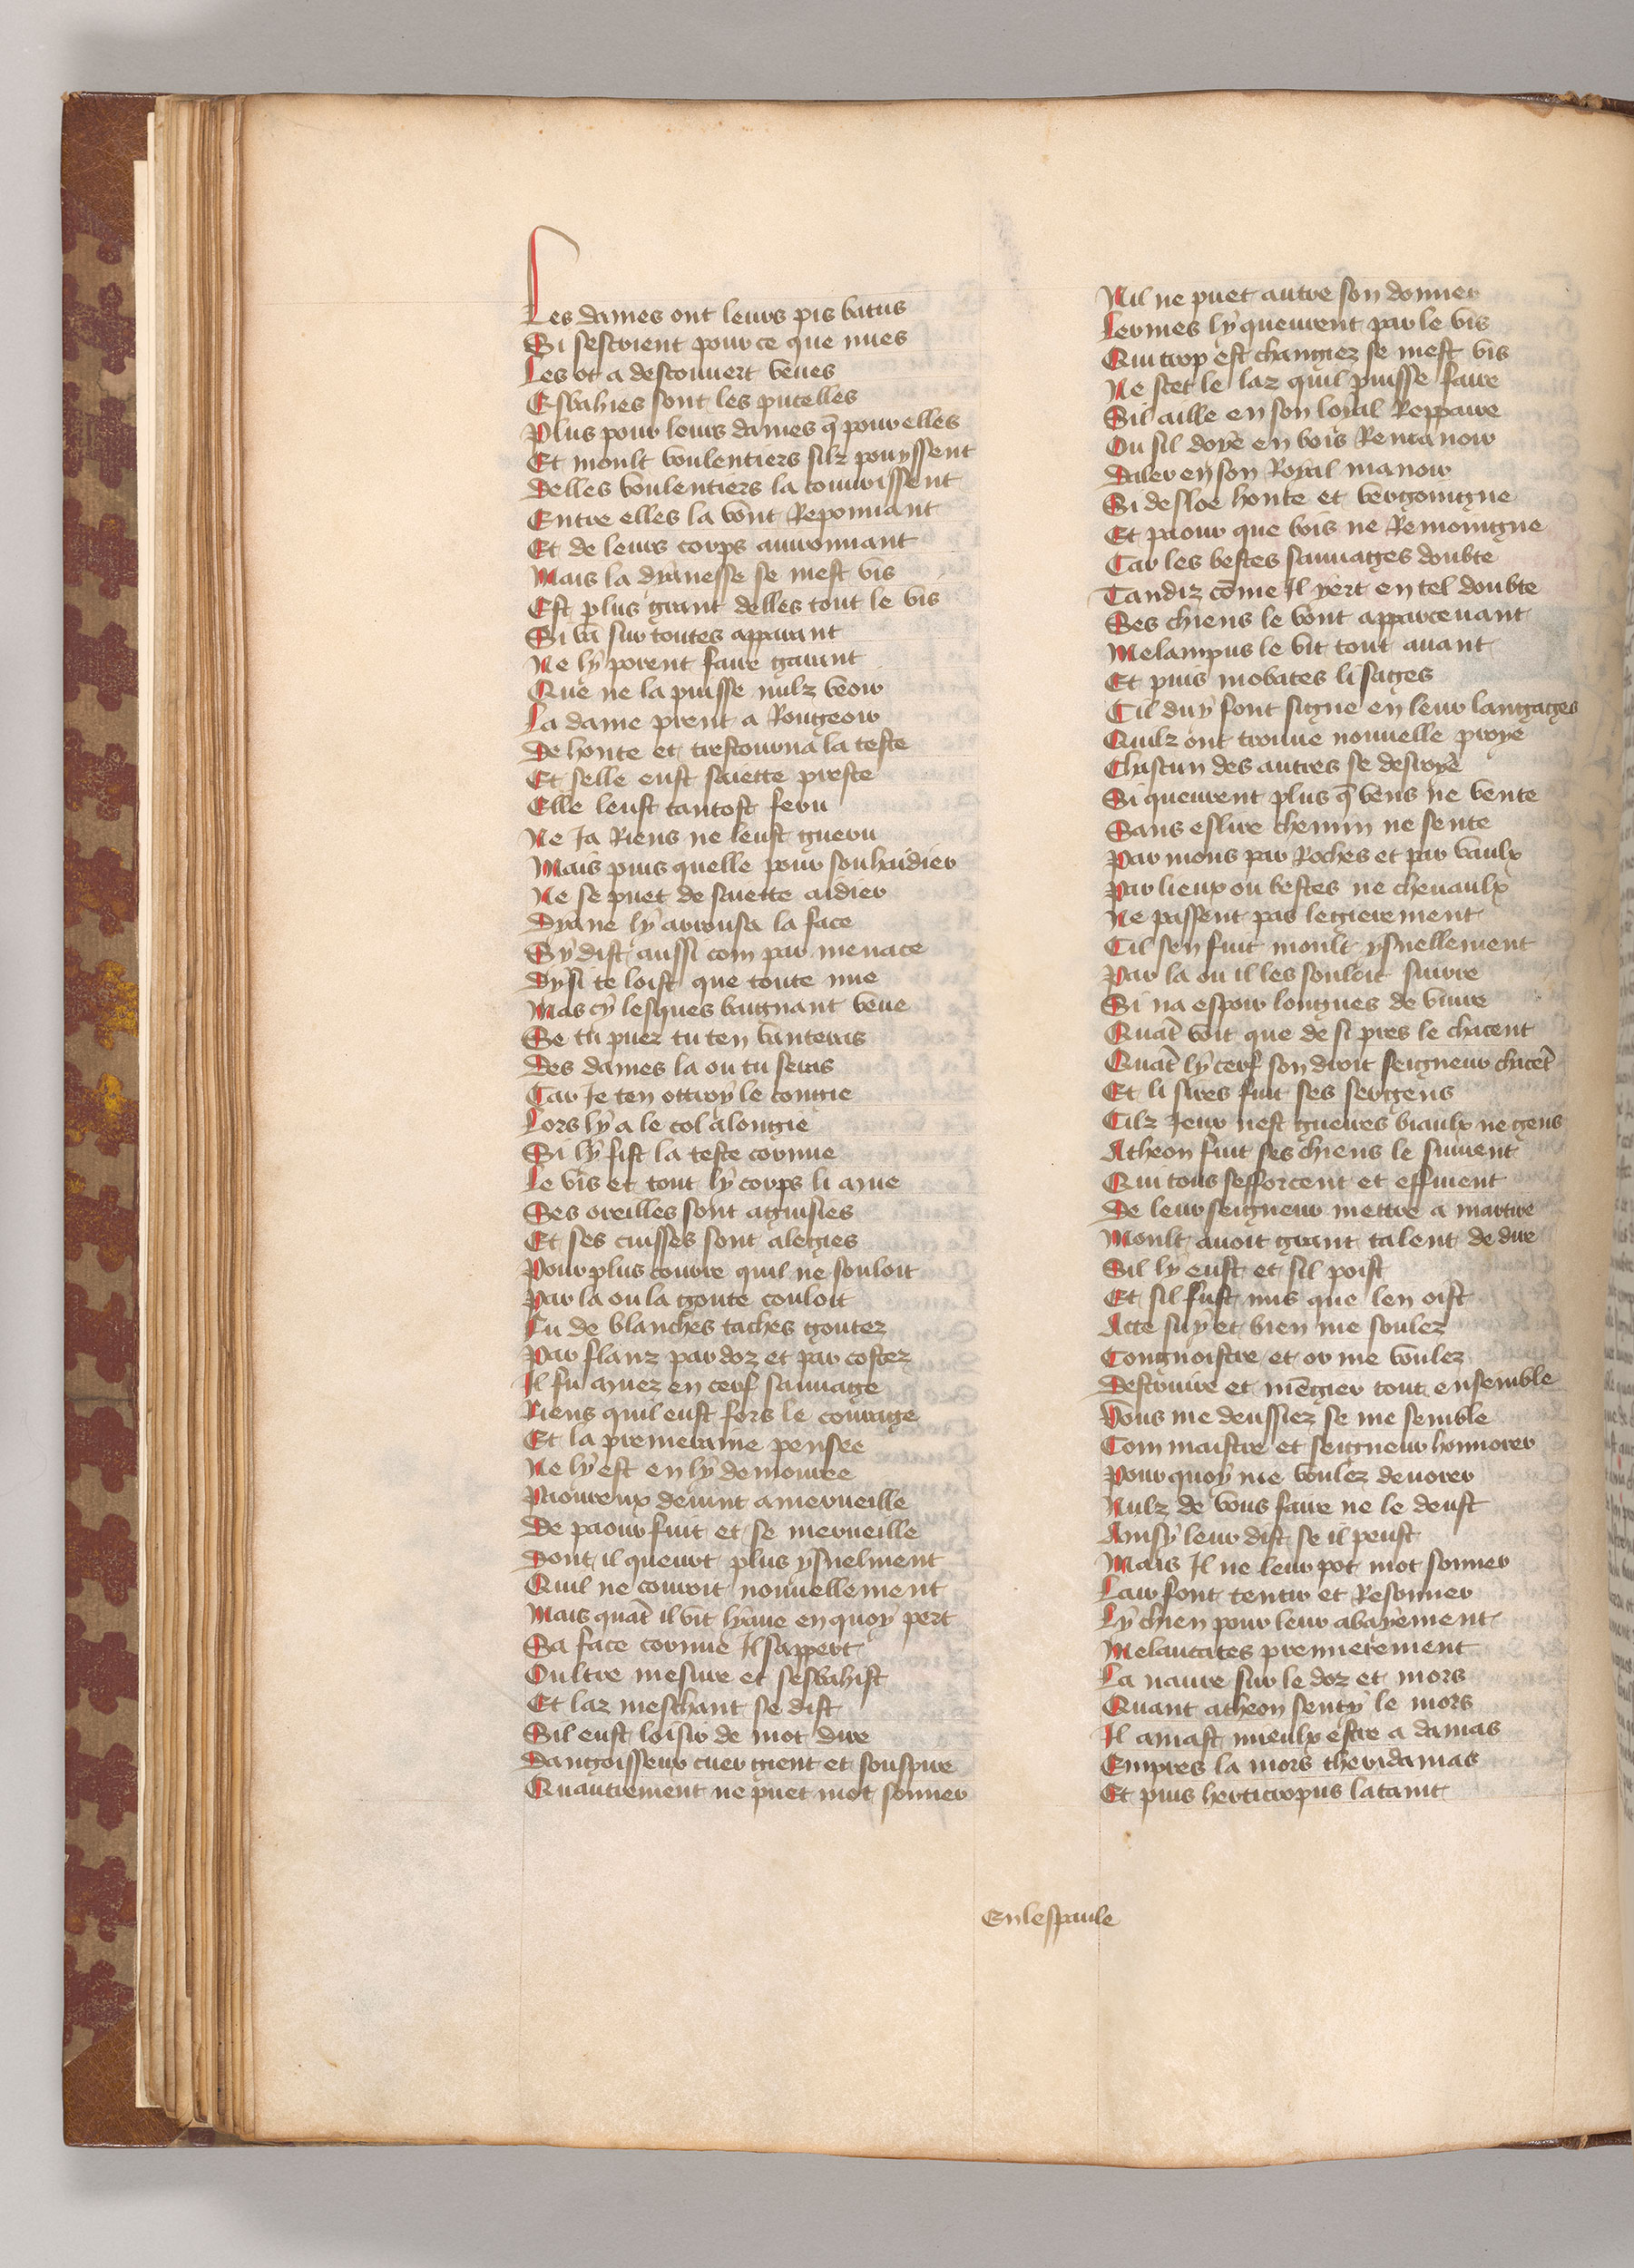 Les dames ont leurs pis batus
Si sescrient pour ce que nues
Les ot a descouvert veues
Esbahies sont les pucelles
Plus pour leurs dames q̃ pour elles
Et moult voulentiers silz pouyssent
Delles voulentiers la couurissent
Entre elles la vont Reponnant
Et de leurs corps auironnant
Mais la dyanesse se mest vis
Est plus grant delles tout le vis
Si va sur toutes apparant
Ne ly porent faire garant
Que ne la puisse nulz veoir
La dame prent a Rougeoir
De honte et trestourna la teste
Et selle eust saiette preste
Elle leust tantost feru
Ne Ja Riens ne leust gueru
Mais puis quelle pour souhaidier
Ne se puet de saiette aidier
Dyane ly arrousa la face
Sy dist aussi com par menace
Dy si te loist que toute nue
Mas cy lesques baignant veue
Se tu puez tu ten vanteras
Des dames la ou tu seras
Car Je ten ottroy le congie
Lors ly a le col alongie
Si ly fist la teste cornue
Le vis et tout ly corps li mue
Ses oreilles sont aguisies
Et ses cuisses sont alegies
Pour plus courre quil ne souloit
Par la ou la goute couloit
Fu de blanches taches goutez
Par flanz par doz et par costez
Il fu muez en cerf sauuage
Riens quil eust fors le courage
Et la premeraine pensee
Ne ly est en ly demouree
Paoureux deuint a merueille
De paour fuit et se merueille
Dont il queurt plus ysnelment
Quil ne couroit nouuellement
Mais quāt il vit lyaue en quoy pert
Sa face cornue Il sappert
Oultre mesure et sesbahist
Et laz meschant se dist
Sil eust loisir de mot dire
Dangoisseur cuer gient et souspire
Quautrement ne puet mot sonner
Nil ne puet autre son donner
Lermes ly queurent par le vis
Qui trop est changiez se mest vis
Ne scet le laz quil puisse faire
Sil aille en son loyal Reppaire
Ou sil doye en bois Remanoir
Daler en son Royal manoir
Si desloe honte et vergoingne
Et paour que bois ne Remoingne
Car les bestes sauuages doubte
Tandiz cōme Il yert en tel doubte
Ses chiens le vont apparceuant
Melampus le vit tout auant
Et puis mobates li sages
Cil duy font signe en leur langages
Quilz ont trouue nouuelle proye
Chascun des autres se desroye
Si queurent plus q̃ vens ne vente
Sans eslire chemin ne sente
Par mons par Roches et par vaulx
Par lieux ou bestes ne cheuaulx
Ne passent pas legierement
Cil sen fuit moult ysnellement
Par la ou il les souloit suiure
Si na espoir longues de viure
Quāt voit que de si pres le chacent
Quāt ly cerf son droit seigneur chacēt
Et li sires fuit ses sergens
Cilz Jeux nest gueres biaulx ne gens
Atheon fuit ses chiens le suiuent
Qui tous sefforcent et effuient
De leur seigneur mettre a martire
Moult auoit grant talent de dire
Sil ly eust et sil poist
Et sil fust nus que len oist
Acte suy et bien me soulez
Congnoistre et or me voulez
Destruire et mēgier tout ensemble
Vous me deussiez se me semble
Com maistre et seigneur honnorer
Pour quoy me voulez deuorer
Nulz de vous faire ne le deust
Ainsy leur dist se il peust
Mais Il ne leur pot mot sonner
Lair font tentir et Resonner
Ly chien pour leur abayement
Melancates premierement
La naure sur le doz et mors
Quant atheon senty le mors
Il amast mieulx estre a damas
Empres la mors theridamas
Et puis hertitropus lataint
En lespaule